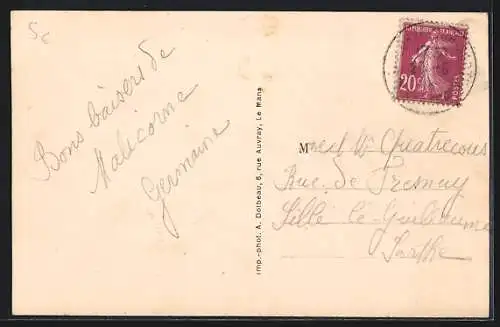 5c
Bons baisers de
Malicorne
Germaine
Imp.-phot. A. Dolbeau, 6, rue Auvray, Le Mans
REPUBLIQUE FRANCAISE
20c
POSTES
M Quatrecous
Rue de Fresnay
Sillé-le-Guillaume
Sarthe